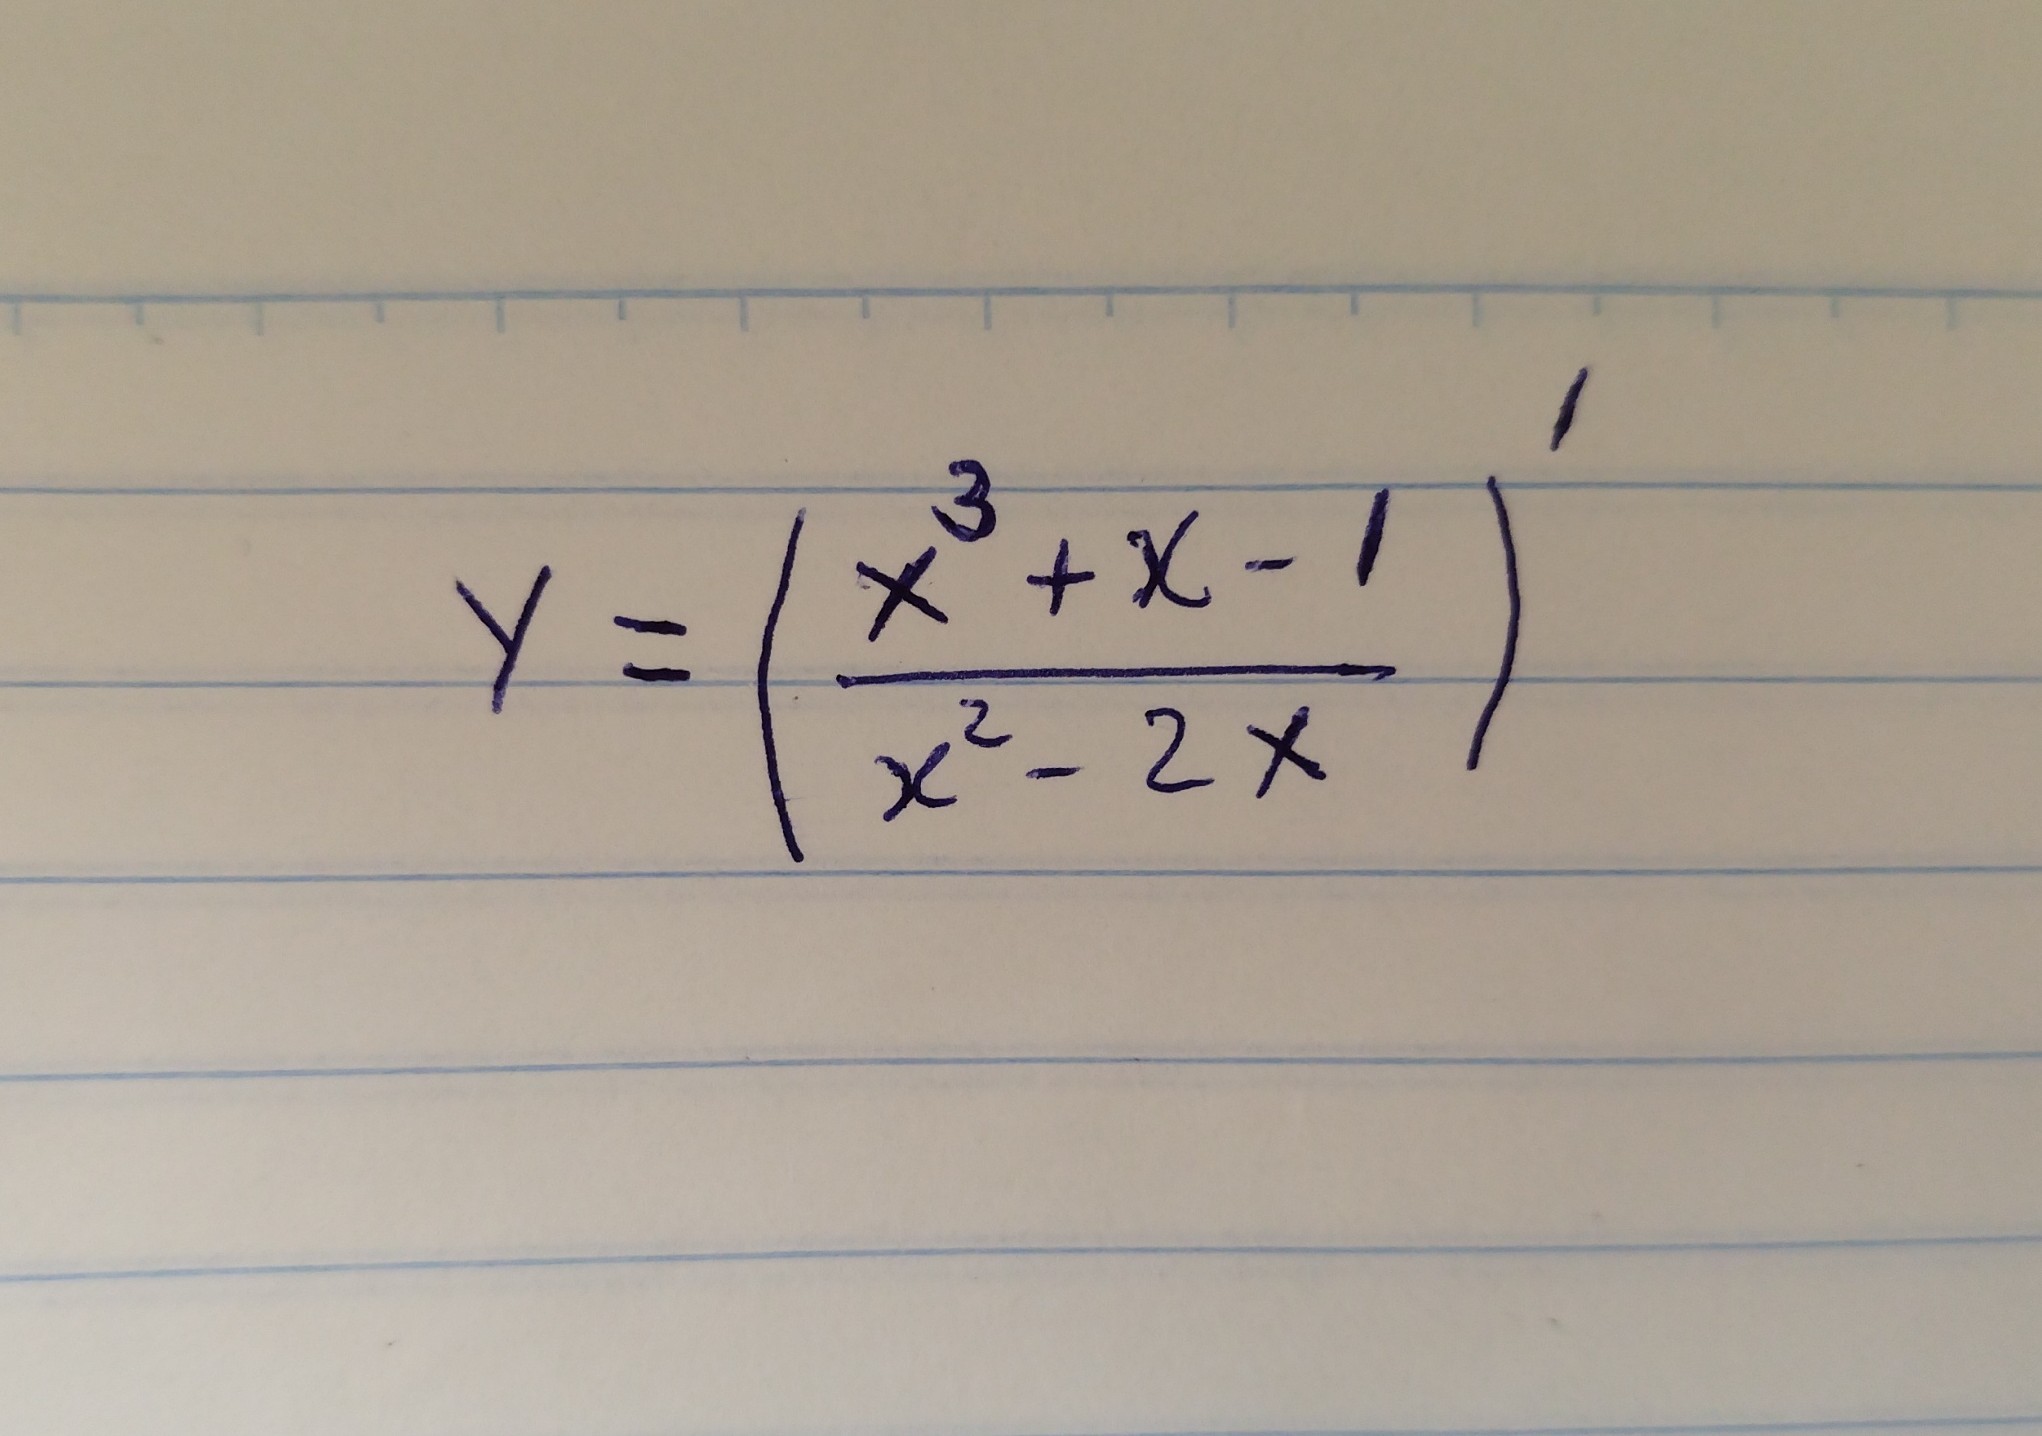 Y = ( (x³ + x - 1) / (x² - 2x) )'